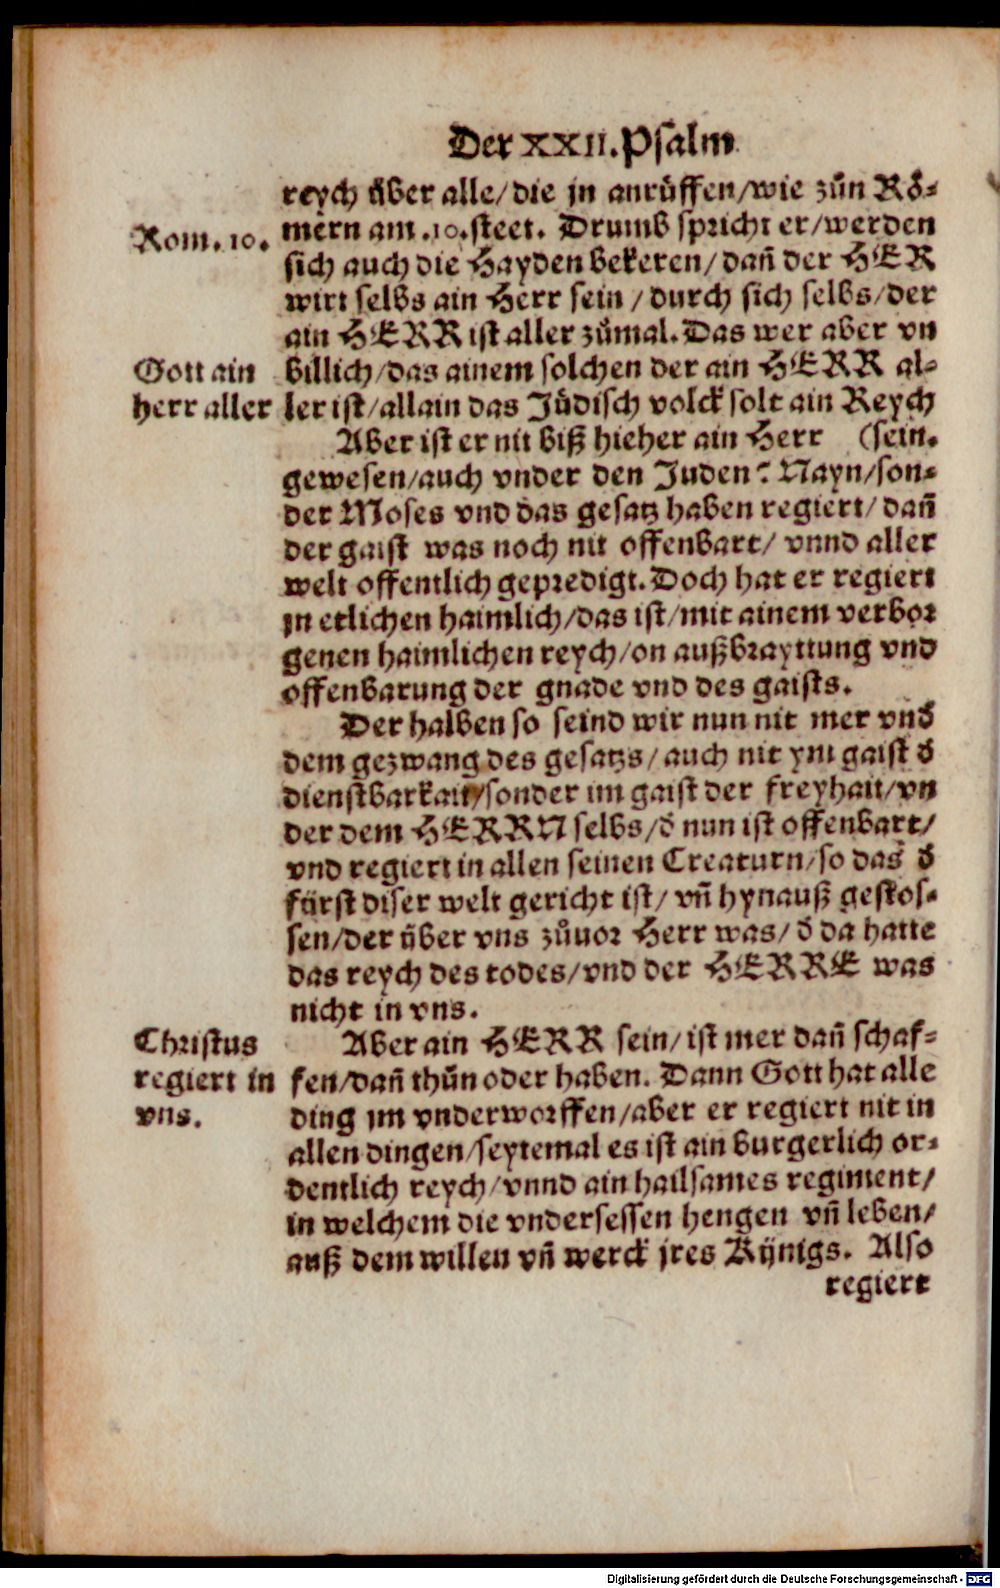 Der XXII. Psalm
reych über alle/ die jn anrůffen/ wie zůn Rö-
Rom. 10.
mern am .10. steet. Drumb spricht er/ werden
sich auch die Hayden bekeren/ dañ der HER
wirt selbs ain Herr sein / durch sich selbs/ der
ain HERR ist aller zůmal. Das wer aber vn
Gott ain
herr aller
billich/ das ainem solchen der ain HERR al-
ler ist/ allain das Jüdisch volck solt ain Reych
Aber ist er nit biß hieher ain Herr (sein.
gewesen/ auch vnder den Juden? Nayn/ son-
der Moses vnd das gesatz haben regiert/ dañ
der gaist was noch nit offenbart/ vnnd aller
welt offentlich gepredigt. Doch hat er regiert
jn etlichen haimlich/ das ist/ mit ainem verbor
genen haimlichen reych/ on außbrayttung vnd
offenbarung der gnade vnd des gaists.
Der halben so seind wir nun nit mer vnd̄
dem gezwang des gesatzs/ auch nit ym gaist d̄
dienstbarkait/ sonder im gaist der freyhait/ vn
der dem HERRN selbs/ d̄ nun ist offenbart/
vnd regiert in allen seinen Creaturn/ so das d̄
fürst diser welt gericht ist/ vñ hynauß gestos-
sen/ der über vns zůuor Herr was/ d̄ da hatte
das reych des todes/ vnd der HERRE was
nicht in vns.
Christus
regiert in
vns.
Aber ain HERR sein/ ist mer dañ schaf-
fen/ dañ thůn oder haben. Dann Gott hat alle
ding jm vnderworffen/ aber er regiert nit in
allen dingen/ seytemal es ist ain burgerlich or-
dentlich reych/ vnnd ain hailsames regiment/
in welchem die vndersessen hengen vñ leben/
auß dem willen vñ werck jres Künigs. Also
regiert
Digitalisierung gefördert durch die Deutsche Forschungsgemeinschaft - DFG